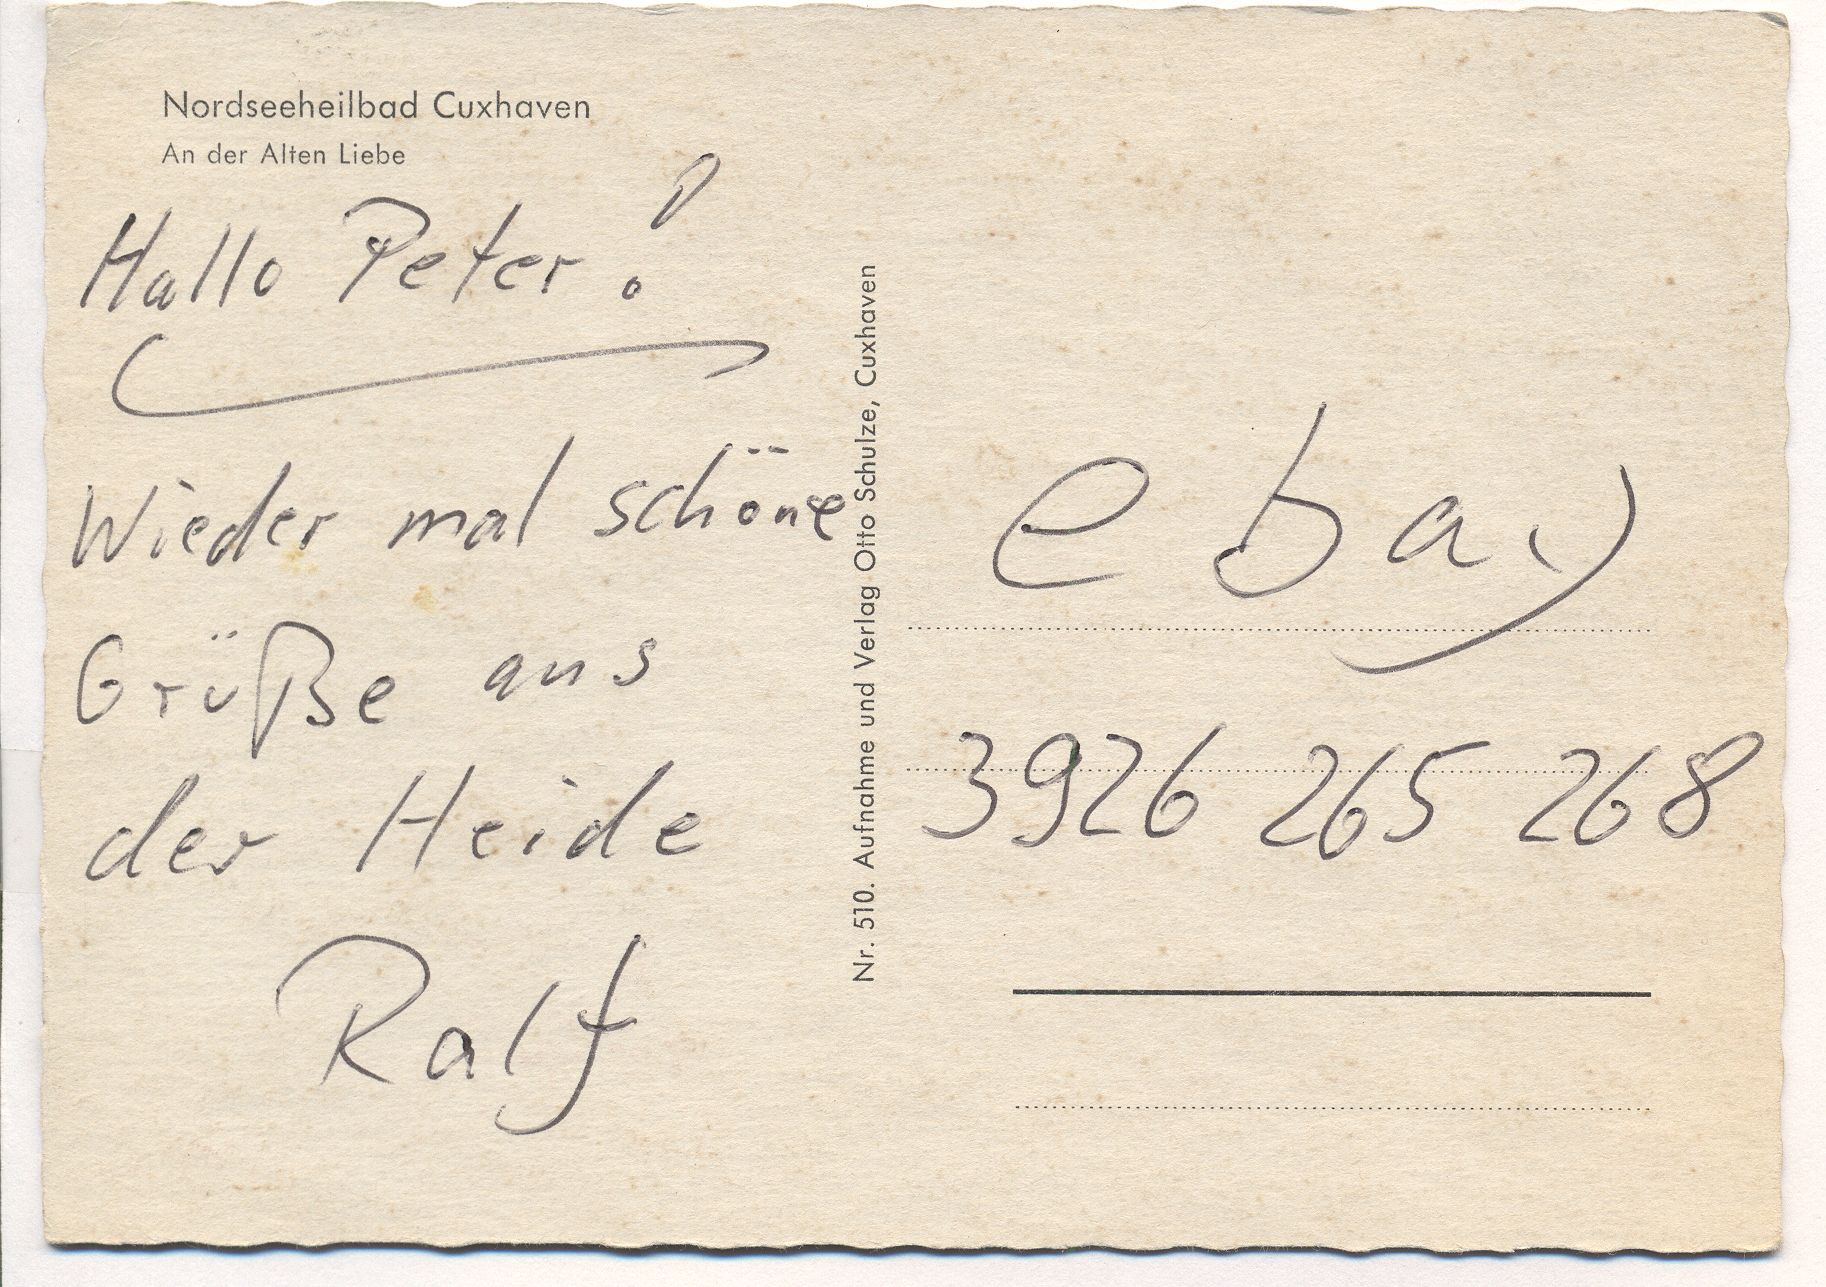 Nordseeheilbad Cuxhaven
An der Alten Liebe
Hallo Peter!
Wieder mal schöne
Grüße aus
der Heide
Ralf
Nr. 510. Aufnahme und Verlag Otto Schulze, Cuxhaven
ebay
3926 265 268